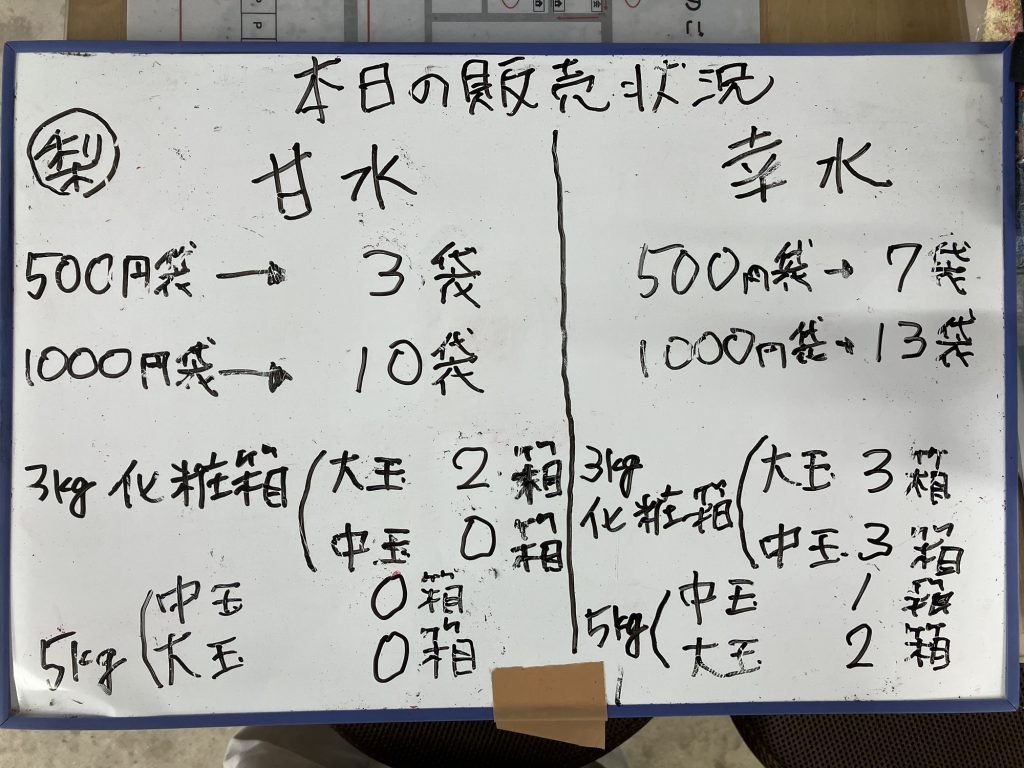 本日の販売状況
梨
甘水
500円袋→ 3袋
1000円袋→ 10袋
3kg 化粧箱(大玉 2箱
中玉 0箱
5kg(中玉 0箱
大玉 0箱
幸水
500円袋→ 7袋
1000円袋→ 13袋
3kg
化粧箱(大玉 3箱
中玉 3箱
5kg(中玉 1箱
大玉 2箱